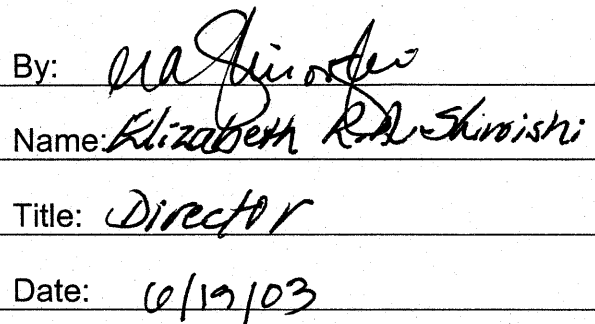 By:
Name: Elizabeth R.A. Shiroishi
Title: Director
Date: 6/19/03